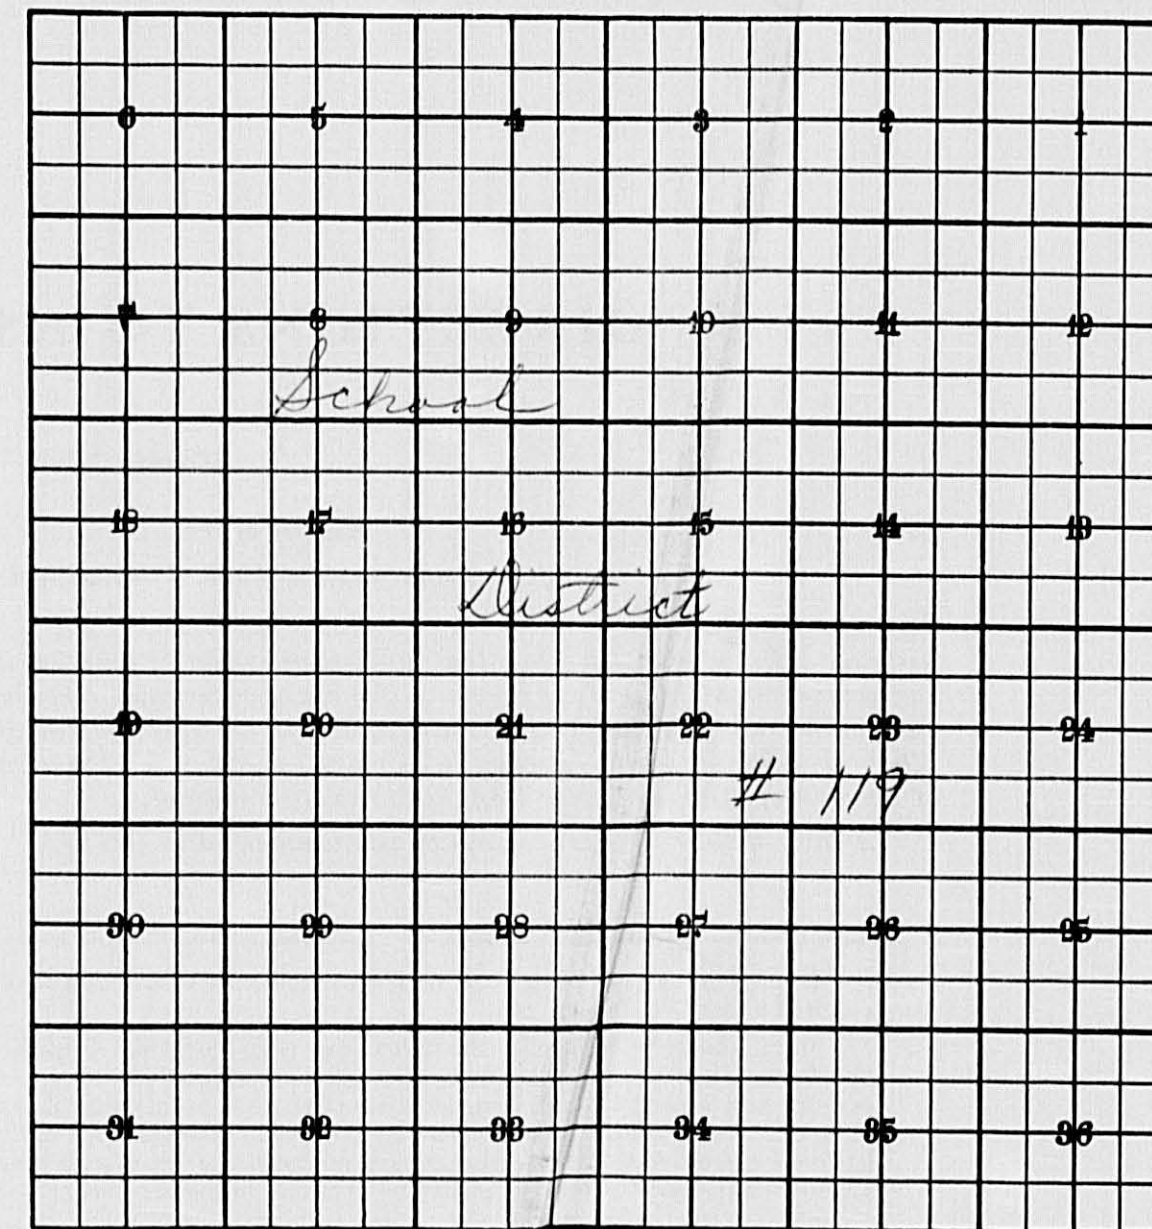 6 5 4 3 2 1
7 8 9 10 11 12
School
18 17 16 15 14 13
District
19 20 21 22 23 24
# 119
30 29 28 27 26 25
31 32 33 34 35 36